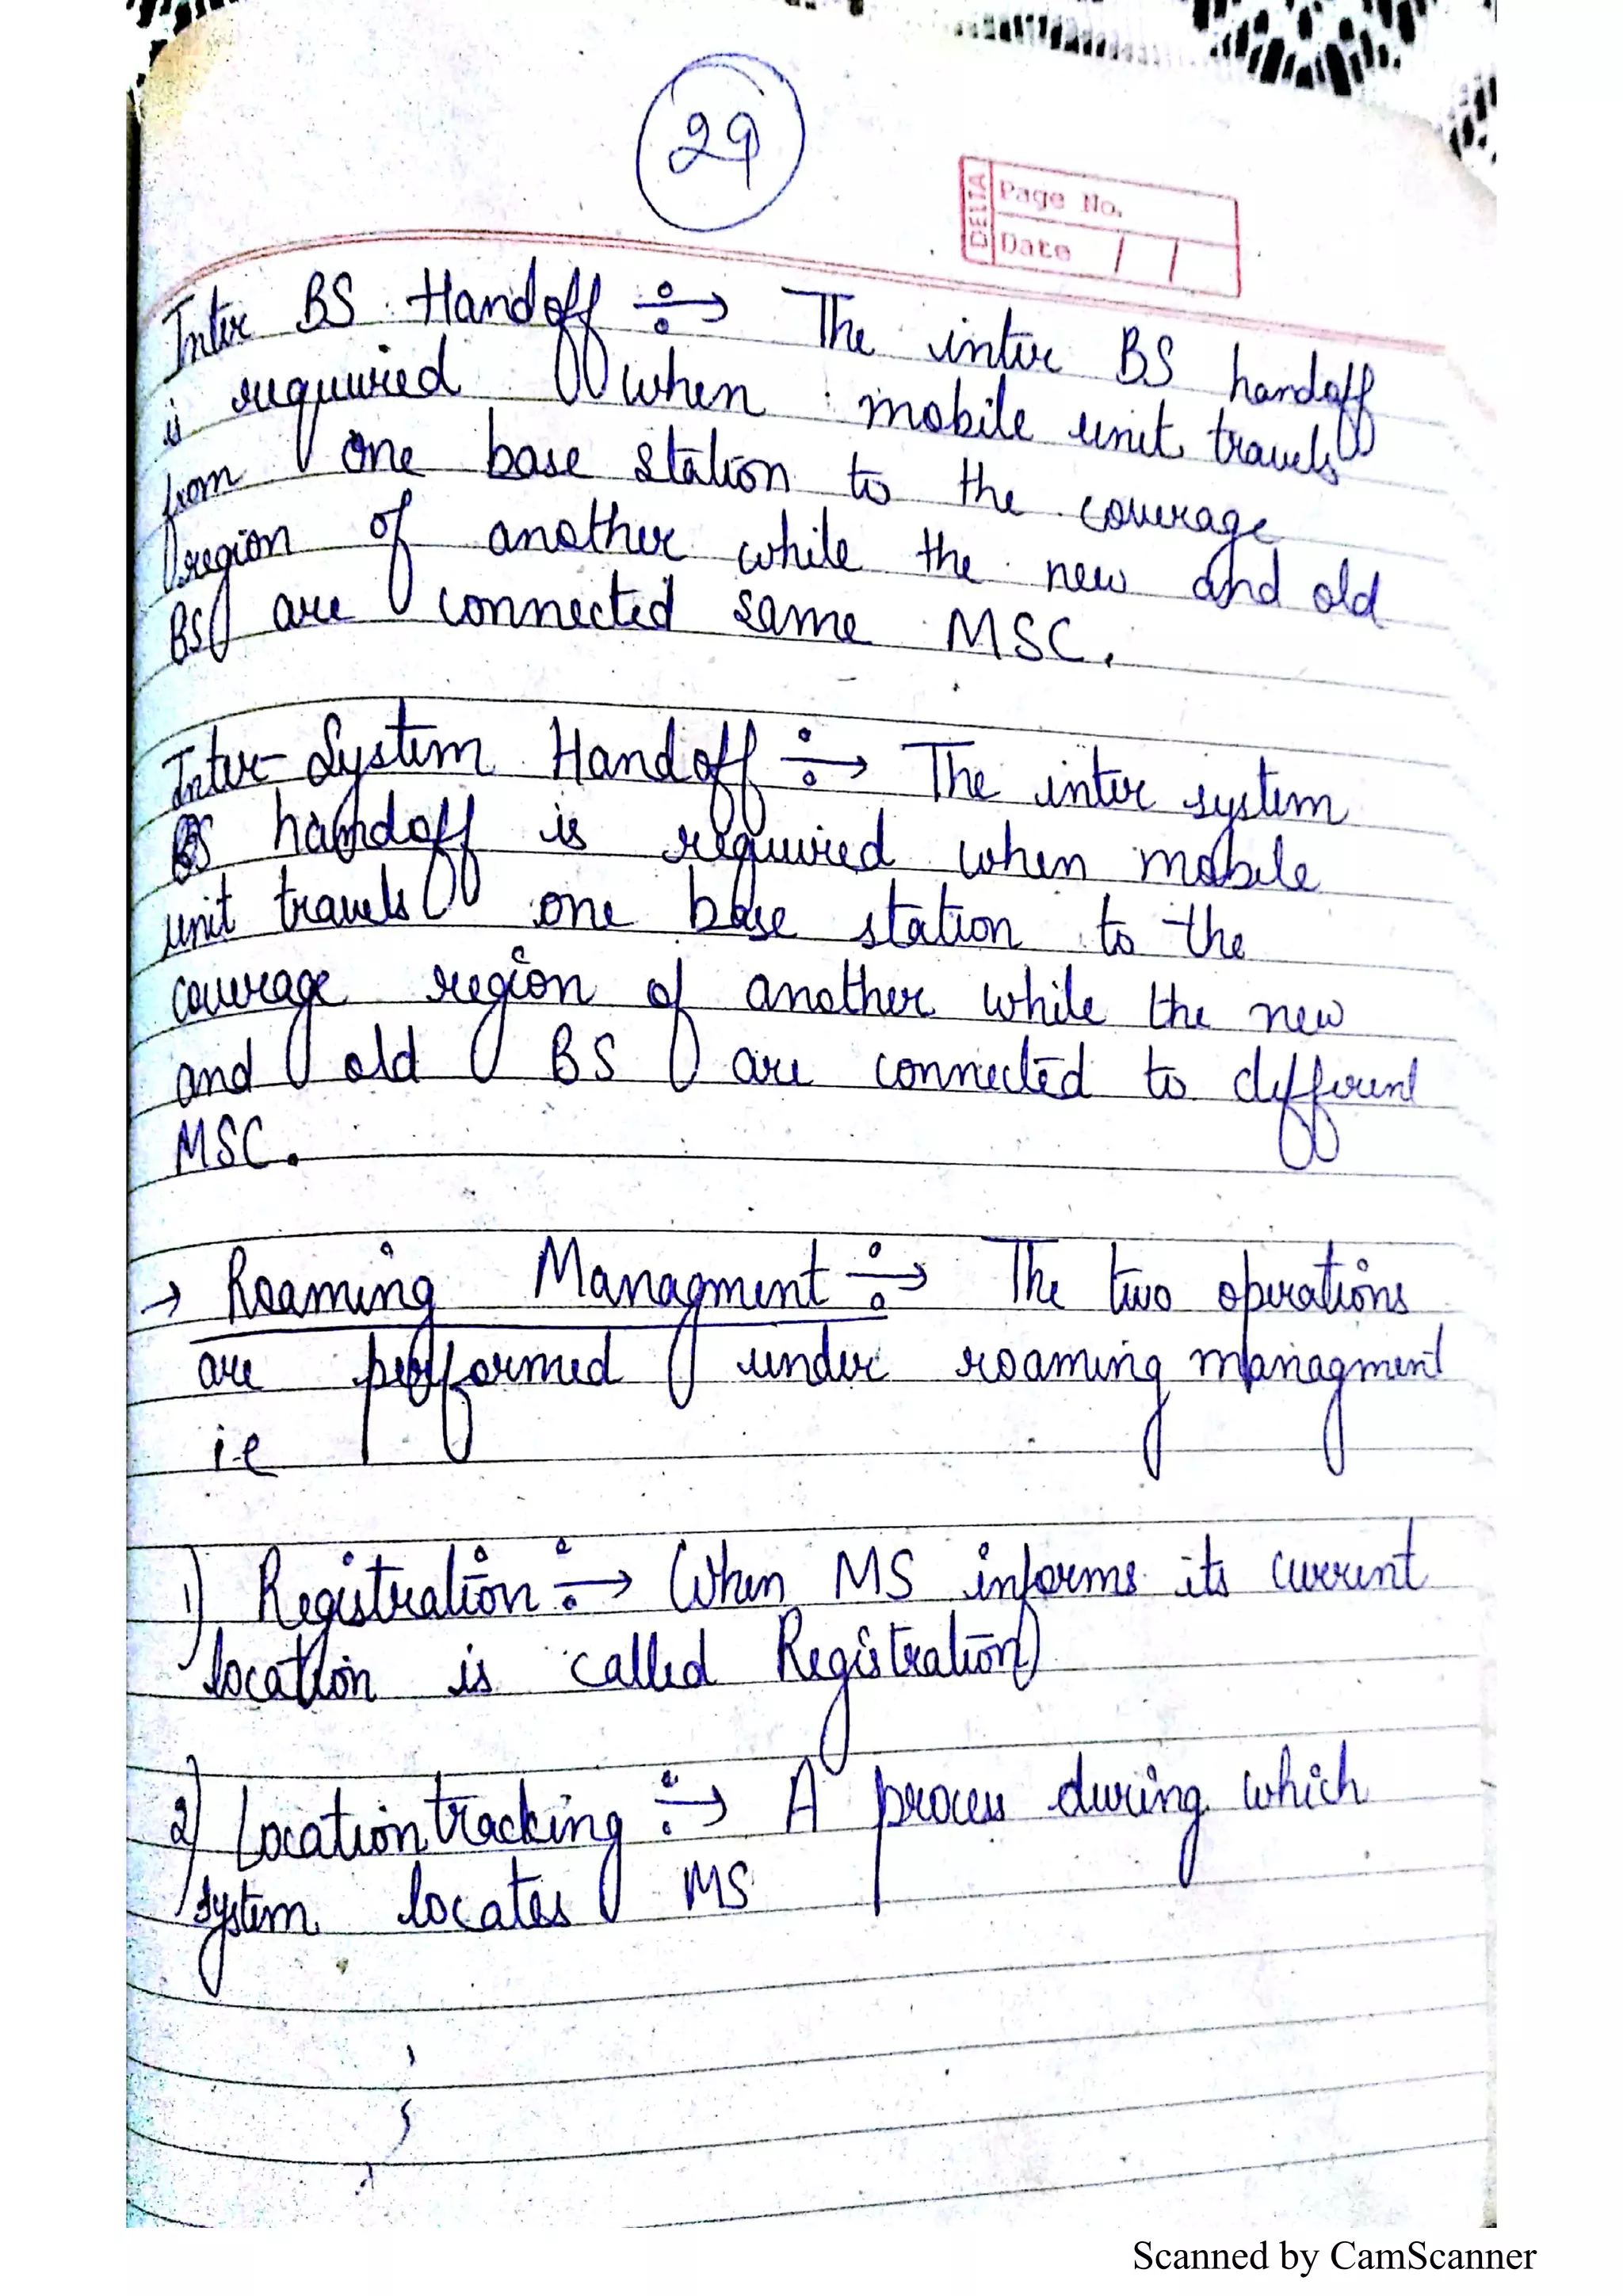 29
DELTA
Page No.
Date / /
Inter BS Handoff ÷→ The inter BS handoff
is required when mobile unit travels
from one base station to the coverage
region of another while the new and old
BS are connected same MSC.
Inter-System Handoff ÷→ The inter system
BS handoff is required when mobile
unit travels one base station to the
coverage region of another while the new
and old BS are connected to different
MSC.
→ Roaming Managment ÷→ The two operations
are performed under roaming managment
i.e
1) Registration ÷→ When MS informs its current
location is called Registration
2) Location tracking ÷→ A process during which
system locates MS
Scanned by CamScanner